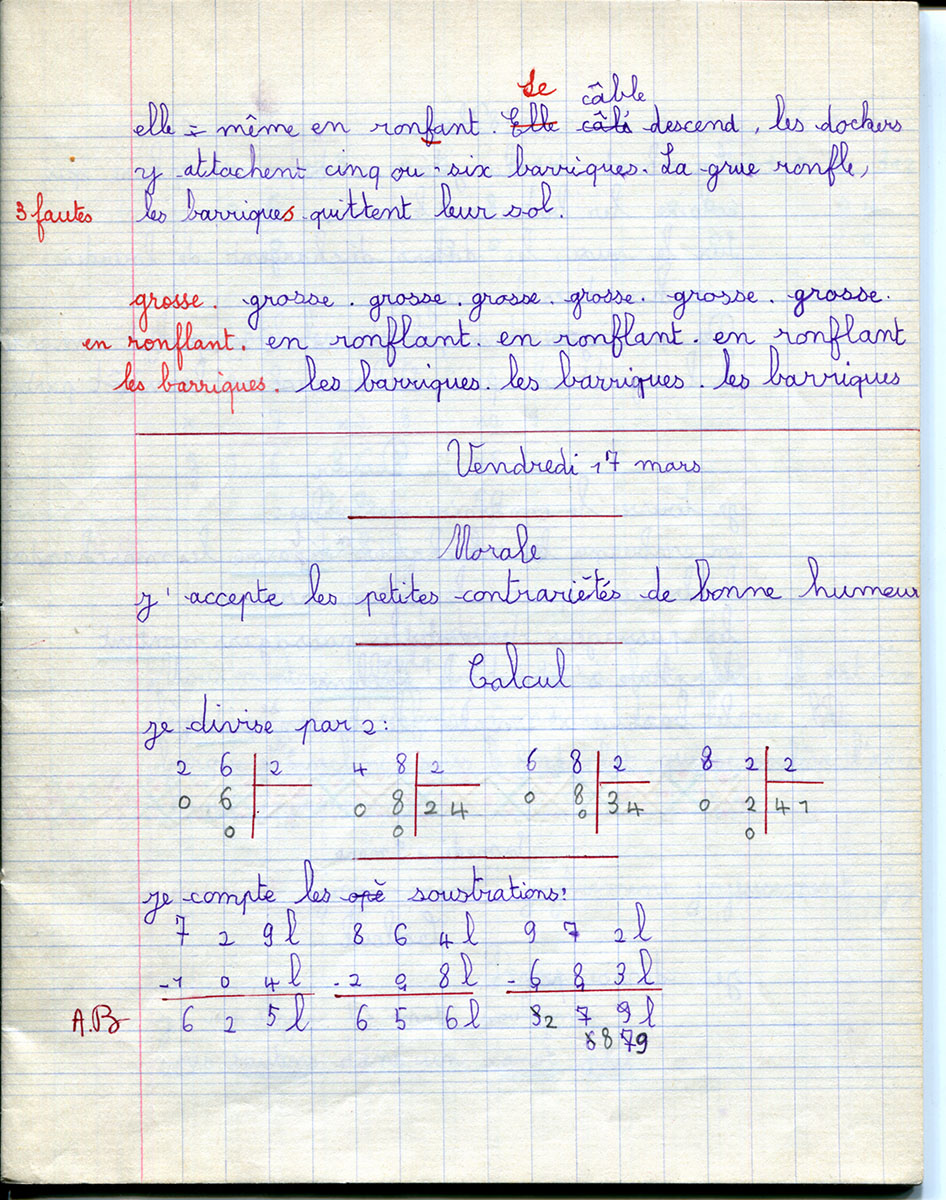 Le câble
elle-même en ronfant. Elle câbl descend, les dockers
y attachent cinq ou six barriques. La grue ronfle,
3 fautes les barriques quittent leur sol.
grosse. grosse. grosse. grosse. grosse. grosse. grosse.
en ronflant. en ronflant. en ronflant. en ronflant
les barriques. les barriques. les barriques. les barriques
Vendredi 17 mars
Morale
j'accepte les petites contrariétés de bonne humeur
Calcul
je divise par 2:
2 6 2 4 8 2 6 8 2 8 2 2
0 6 0 8 2 4 0 8 3 4 0 2 4 1
0 0 0 0
je compte les opé soustrations:
7 2 9l 8 6 4l 9 7 2l
-1 0 4l -2 0 8l -6 8 3l
A.B 6 2 5l 6 5 6l 2 7 9l
879